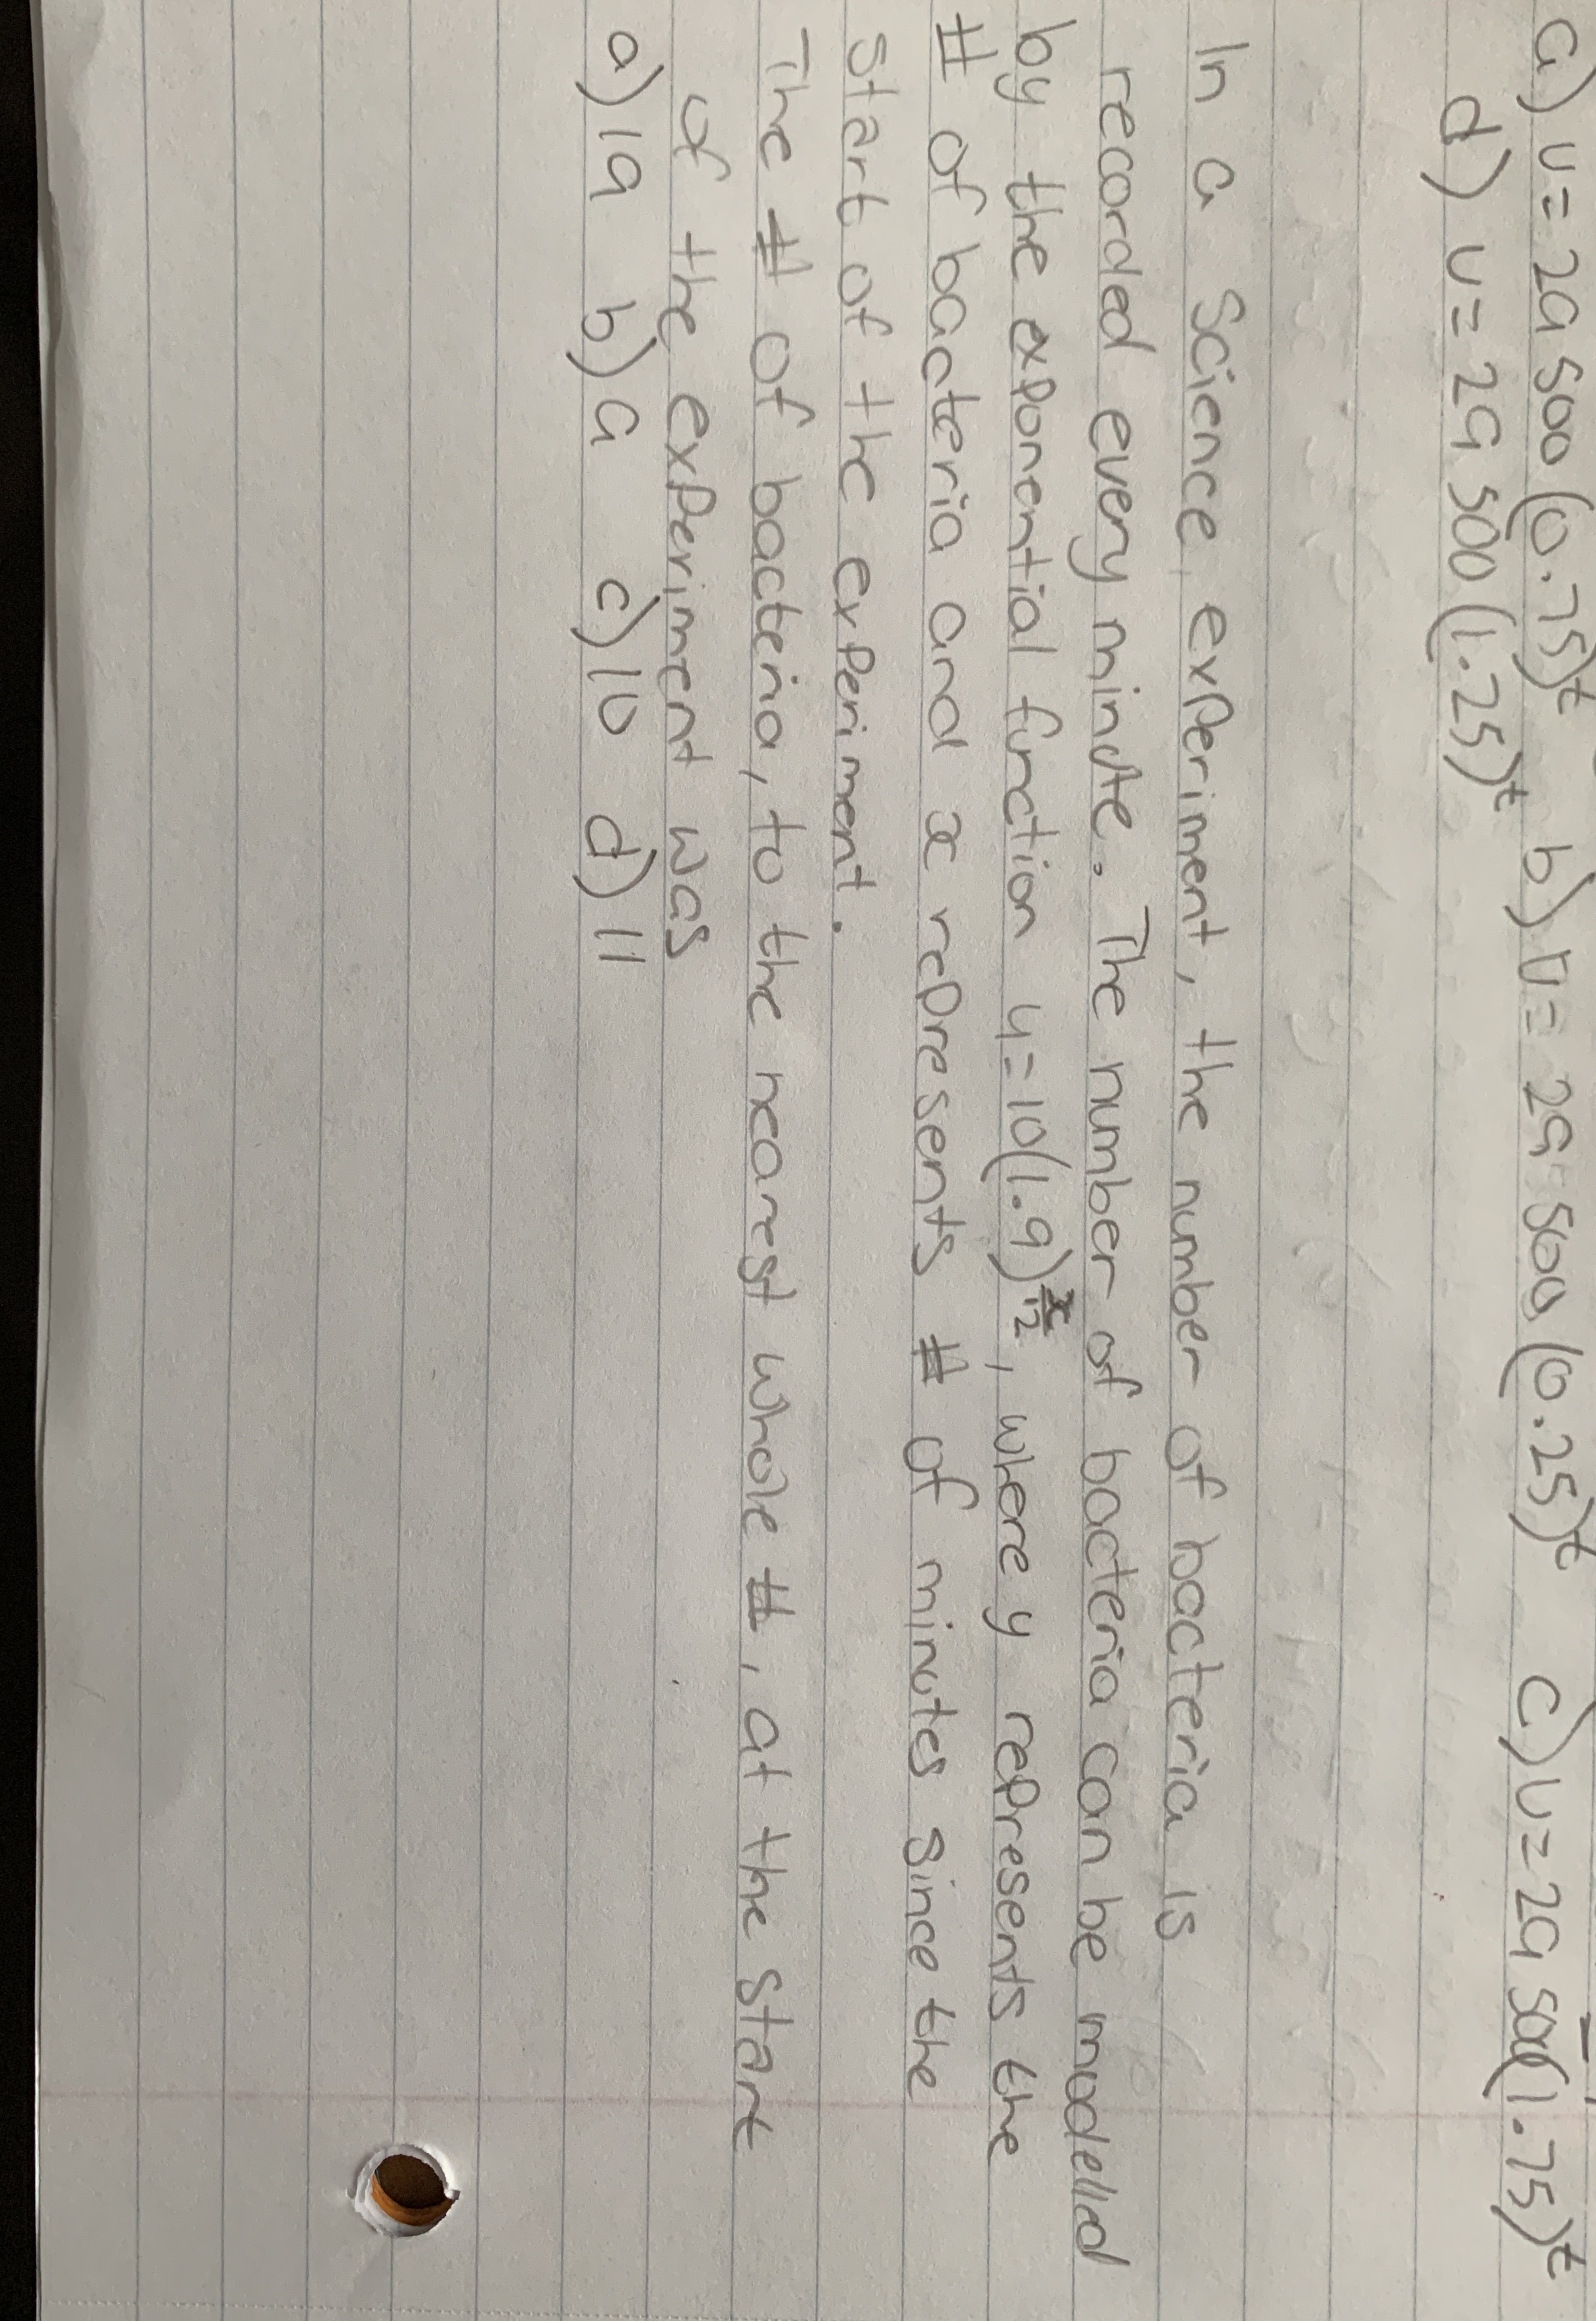 a) v = 29 500 (0.75)^t b) v = 29 500 (0.25)^t c) v = 29 500 (1.75)^t
d) v = 29 500 (1.25)^t
In a Science experiment, the number of bacteria is
recorded every minute. The number of bacteria can be modelled
by the exponential function y = 10(1.9)^x/12, where y represents the
# of bacteria and x represents # of minutes since the
start of the experiment.
The # of bacteria, to the nearest whole #, at the start
of the experiment was
a) 19 b) 9 c) 10 d) 11